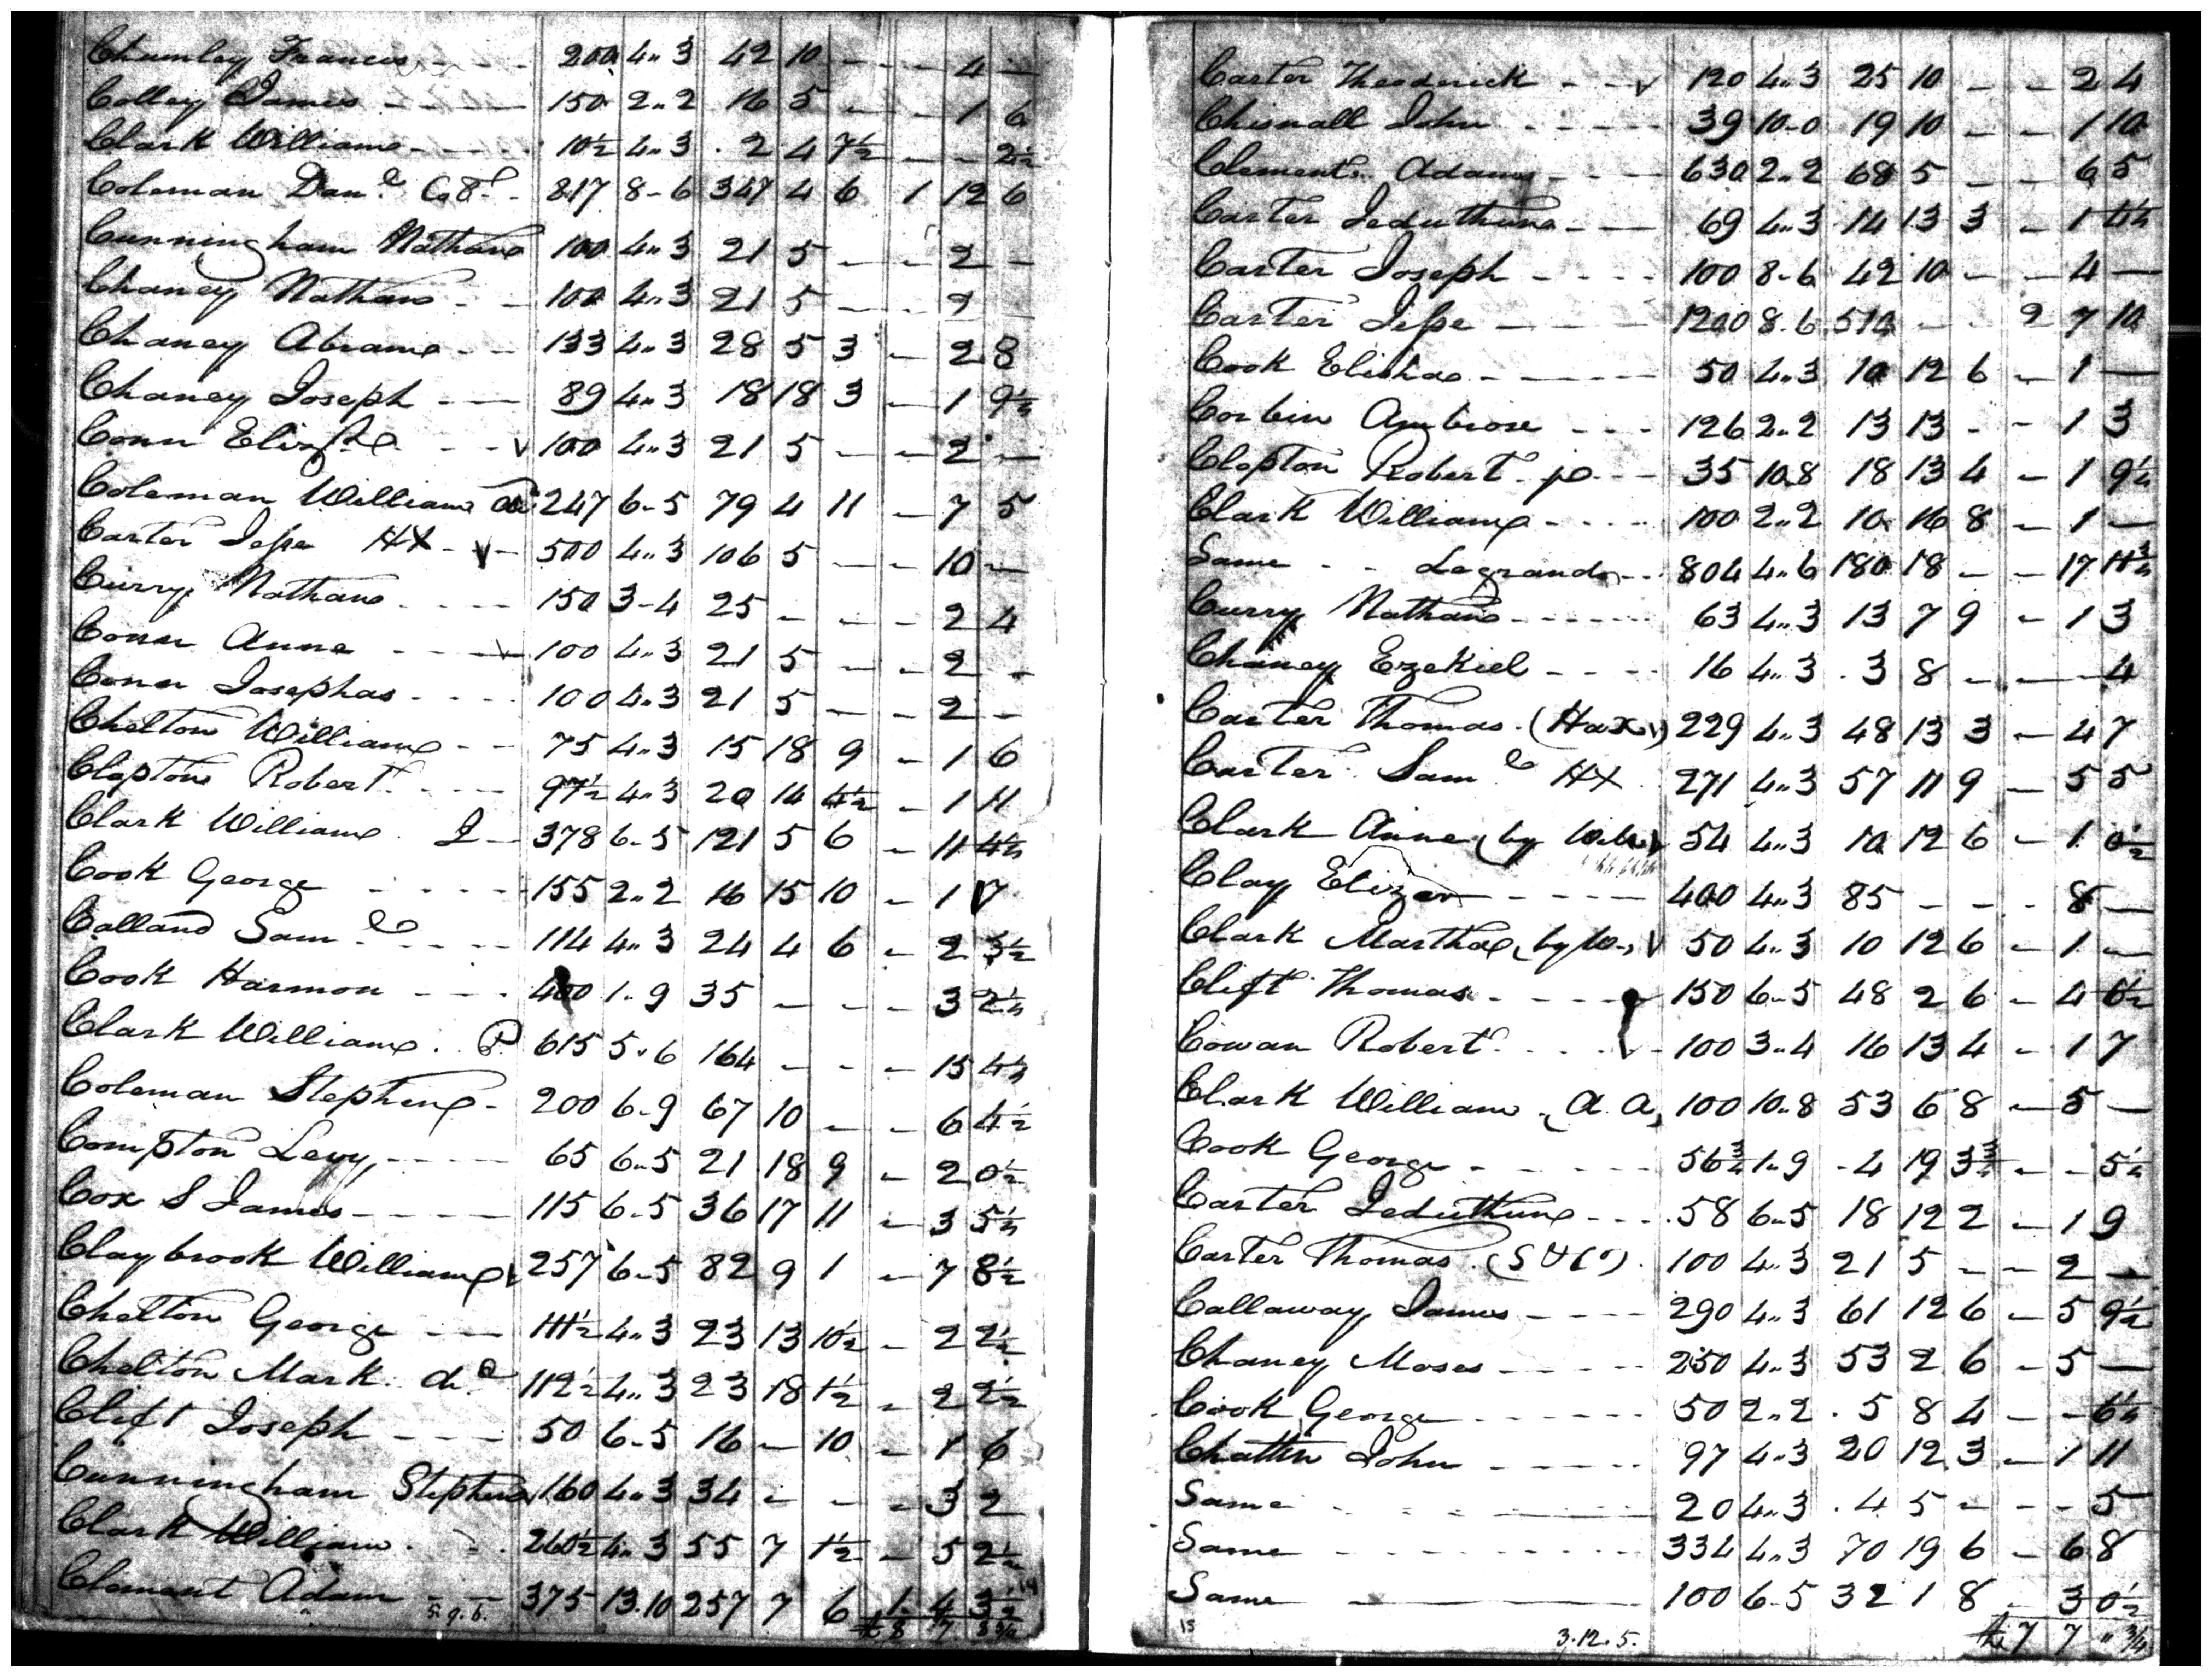 Chumley Francis - - - 200 4..3 42 10 - - - 4 -
Colley James - - - - 150 2..2 16 5 - - - 1 6
Clark William - - - 10½ 4..3 . 2 4 7½ - - - 2½
Coleman Danl. Col. - 817 8-6 347 4 6 1 12 6
Cunningham Nathan 100 4..3 21 5 - - 2 -
Chaney Nathan - - 100 4..3 21 5 - - 2
Chaney Abram - - 133 4..3 28 5 3 - 2 8
Chaney Joseph - - - 89 4..3 18 18 3 - 1 9½
Conn Elizth. - - v 100 4..3 21 5 - - 2 -
Coleman William 247 6-5 79 4 11 - 7 5
Carter Jesse HX - v - 500 4..3 106 5 - - 10 -
Curry Nathan - - - - 150 3-4 25 - - - 2 4
Conn Anne - - - v - 100 4..3 21 5 - - 2 -
Conn Josephas - - - 100 4..3 21 5 - - 2 -
Chelton William - - 75 4..3 15 18 9 - 1 6
Clopton Robert - - - - 97½ 4..3 20 14 4½ - 1 11
Clark William . J - 378 6-5 121 5 6 - 11 4½
Cook George - - - - 155 2..2 16 15 10 - 1 7
Calland Saml. - - - - 114 4..3 24 4 6 - 2 3½
Cook Harmon - - - - 400 1..9 35 - - - 3 2½
Clark William . P 615 5.6 164 - - - 15 4½
Coleman Stephen - 200 6-9 67 10 - - 6 4½
Compton Levy - - - - 65 6-5 21 18 9 - 2 0½
Cox S James - - - - 115 6-5 36 17 11 - 3 5½
Claybrook William v 257 6-5 82 9 1 - 7 8½
Chelton George - - - 111½ 4..3 23 13 10½ - 2 2½
Chelton Mark. do. 112½ 4..3 23 18 1½ - 2 2½
Clift Joseph - - - 50 6-5 16 - 10 - 1 6
Cunningham Stephen 160 4..3 34 - - - 3 2
Clark William . - . 260½ 4..3 55 7 1½ - 5 2½
Clement Adam - - 375 13.10 257 7 6 1. 4 3½
5.9.6. £8 7 3¾
14
Carter Theoderick - - v 120 4..3 25 10 - - 2 4
Chisnall John - - - - - 39 10-0 19 10 - - 1 10
Clement. Adam - - - 630 2..2 68 5 - - 6 5
Carter Jeduthun - - - 69 4..3 14 13 3 - 1 4½
Carter Joseph - - - - 100 8-6 42 10 - - 4 -
Carter Jesse - - - - 1200 8.6 510 - - 2 7 10
Cook Elisha - - - - - 50 4..3 10 12 6 - 1 -
Corbin Ambrose - - - 126 2..2 13 13 - - 1 3
Clopton Robert - jr. - - 35 10.8 18 13 4 - 1 9½
Clark William - - - - 100 2..2 10 16 8 - 1 -
Same - - Legrands - - 804 4..6 180 18 - - 17 11¾
Curry Nathan - - - - - - 63 4..3 13 7 9 - 1 3
Chaney Ezekiel - - - - 16 4..3 . 3 8 - - - 4
Carter Thomas. (Hax) 229 4..3 48 13 3 - 4 7
Carter Saml. HX 271 4..3 57 11 9 - 5 5
Clark Anne by v 54 4..3 10 12 6 - 1 0½
Clay Elizar - - - - - 400 4..3 85 - - - 8 -
Clark Martha by v 50 4..3 10 12 6 - 1 -
Clift Thomas. - - - - 150 6-5 48 2 6 - 4 6½
Cowan Robert . . . . v - 100 3-4 16 13 4 - 1 7
Clark William (A. A) 100 10.8 53 6 8 - 5 -
Cook George - - - - - 56¾ 1..9 . 4 19 3¾ - - 5½
Carter Jeduthun - - - 58 6-5 18 12 2 - 1 9
Carter Thomas . 100 4..3 21 5 - - 2 -
Callaway James - - - - 290 4..3 61 12 6 - 5 9½
Chaney Moses - - - - - 250 4..3 53 2 6 - 5 -
Cook George - - - - - 50 2..2 . 5 8 4 - - 6½
Chattin John - - - - - 97 4..3 20 12 3 - 1 11
Same - - - - - 20 4..3 . 4 5 - - - 5
Same - - - - - - - - 334 4..3 70 19 6 - 6 8
Same - 100 6-5 32 1 8 - 3 0½
15 3.12.5. £7 7 " ¾